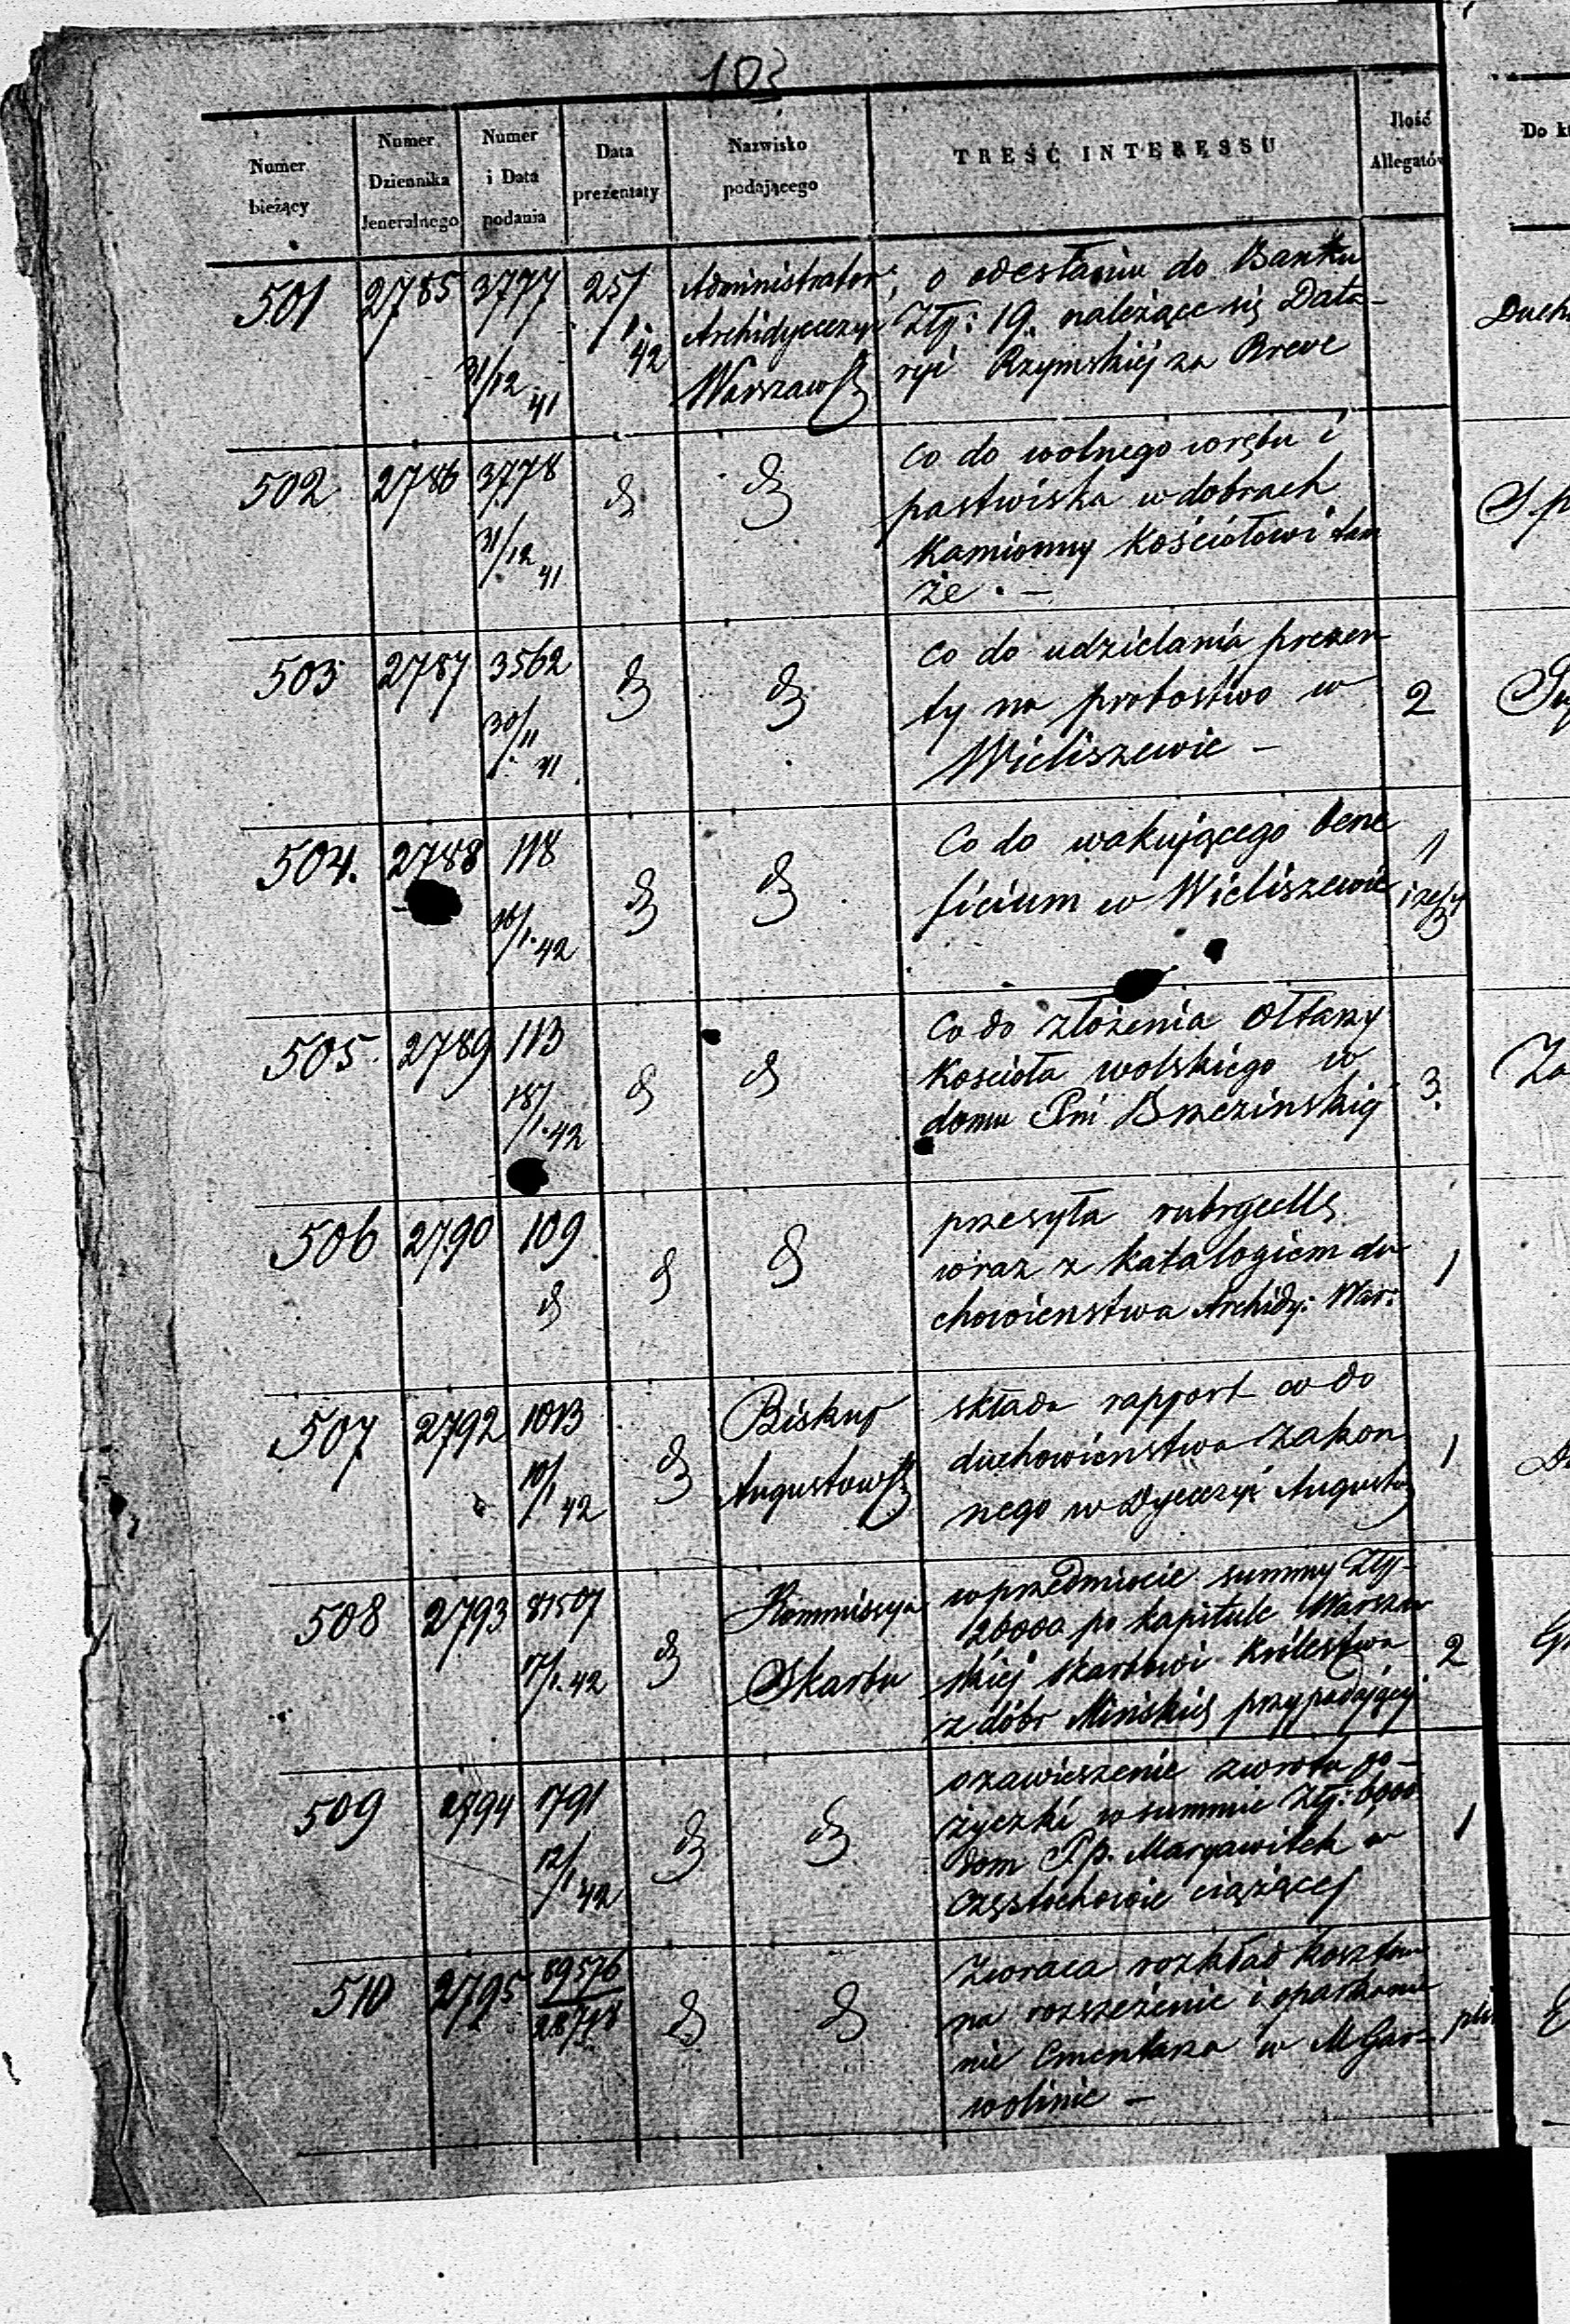 103
Numer bieżący
Numer Dziennika Jeneralnego
Numer i Data podania
Data prezentaty
Nazwisko podającego
TREŚĆ INTERESSU
Ilość Allegatów
Do k
501 2785 3777 31/12 41 25/1. 42
Administrator
Archidyecezyi
Warszaws
o odesłaniu do Banku
Złp: 19. należące się Data-
ryi Rzymskiéj za Breve
Duch
502 2786 3778 31/12 41 d d
Co do wolnego wrębu i
pastwiska w dobrach
Kamionny Kościołowi tam
że . —
503 2787 3562 30/11 41 d d
Co do udzielania prezen
ty na probostwo w
Wieliszewie —
2
504. 2788 118 16/1. 42 d d
Co do wakującego bene
ficium w Wieliszewie
1
505 2789 113 18/1. 42 d d
Co do złożenia Ołtarzy
Kościoła wolskiego w
domu Pni Brzezinskiéj
3.
Za
506 2790 109 d d d
przesyła rubrycellę
wraz z katalogiem du-
chowieństwa Archidy: War:
1
507 2792 1013 10/1 42 d
Biskup
Augustows
składa rapport co do
duchowieństwa zakon
nego w Dyecezyi Augusto
1
508 2793 81507 17/1. 42 d
Kommissya
Skarbu
w przedmiocie summy Złp-
26000 po kapitule Warszaw
skiéj skarbowi Królestwa
z dóbr Mińskich przypadającéj
2
509 2794 1791 12/1 42 d d
o zawieszenie zwrotu po-
życzki w summie Złp: 6000
dom P.p. Maryawitek w
Częstochowie ciążącej
1
510 2795 89576 28718 d d
Zwraca rozkład kosztów
na rozszerzenie i oparkanie
nie Cmentarza w M Gar-
wolinie —